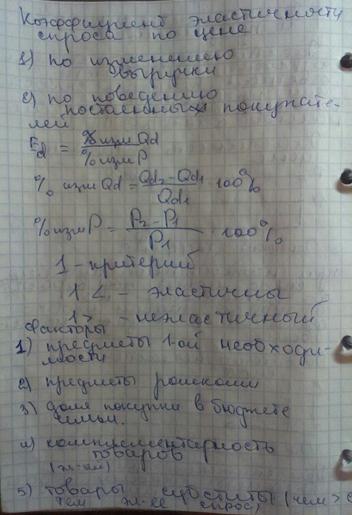 Коэффициент эластичности
спроса по цене
1) по изменению
выручки
2) по поведению
постоянных покупате-
лей
Ed = % изм Qd / % изм P
% изм Qd = Qd2 - Qd1 / Qd1 · 100%
% изм P = P2 - P1 / P1 · 100%
1 - критерий
1 < - эластичны
1 > - неэластичный
Факторы
1) предметы 1-ой необходи-
мости
2) предметы роскоши
3) доля покупки в бюджете
семьи.
4) комплементарность
товаров
5) товары субституты (чем >
тем эл-ее спрос)